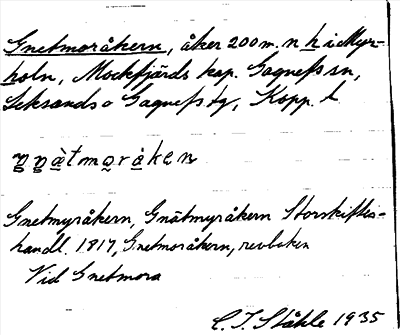 Gnetmoråkern, åker 200 m. n h i Myr-
holn, Mockfjärds kap. Gagnefs sn,
Leksands o Gagnefs tg, Kopp. l
Gnetmyråkern, Gnätmyråkern Storskiftes-
handl. 1817, Gnetmoråkern, revboken
Vid Gnetmora
C. I. Ståhle 1935